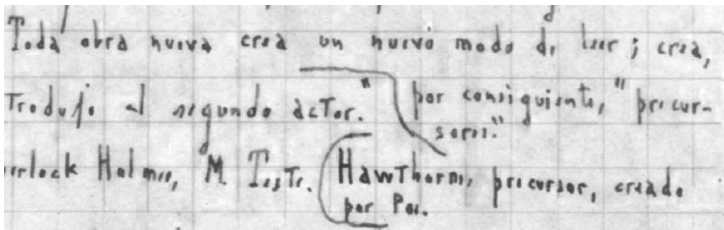 Toda obra nueva crea un nuevo modo de leer; crea,
Trodujo al segundo actor." por consiguiente, "precur-
sores."
erlock Holmes, M Teste. Hawthorne, precursor, creado
por Poe.